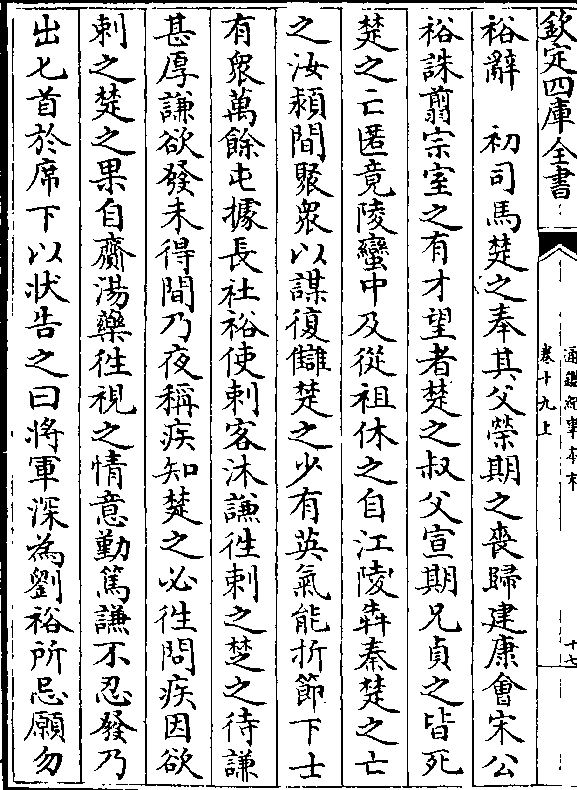 欽定四庫全書
通鑑紀事本末
卷十九上
十七
裕辭　初司馬楚之奉其父榮期之喪歸建康會宋公
裕誅翦宗室之有才望者楚之叔父宣期兄貞之皆死
楚之亡匿竟陵蠻中及從祖休之自江陵犇秦楚之亡
之汝潁間聚衆以謀復讎楚之少有英氣能折節下士
有衆萬餘屯據長社裕使刺客沐謙往刺之楚之待謙
甚厚謙欲發未得間乃夜稱疾知楚之必往問疾因欲
刺之楚之果自齎湯藥往視之情意勤篤謙不忍發乃
出匕首於席下以狀告之曰將軍深為劉裕所忌願勿